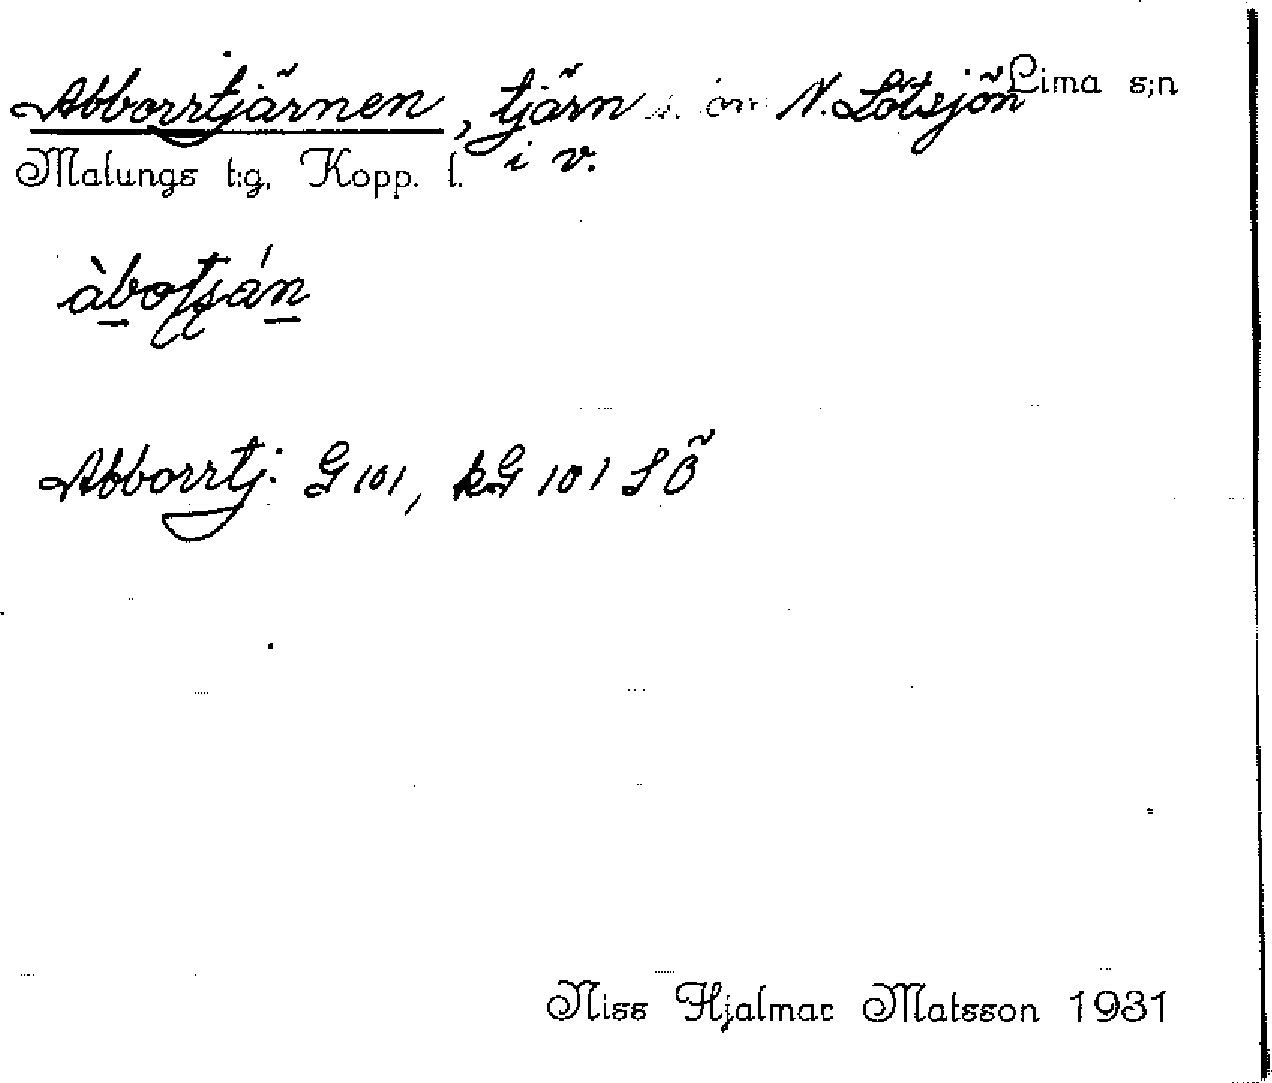 Abborrtjärnen, tjärn n. om N. Lötsjön Lima s:n
i v.
Malungs t:g, Kopp. l.
Abborrtj. G 101, kG 101 SÖ
Niss Hjalmar Matsson 1931